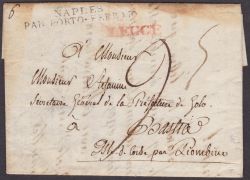 6
NAPLES
PAR PORTO-FERRAJO
LEGGE
A Monsieur
Monsieur
Secretaire Général de la Préfecture de Golo
à
Bastia
par Piombino